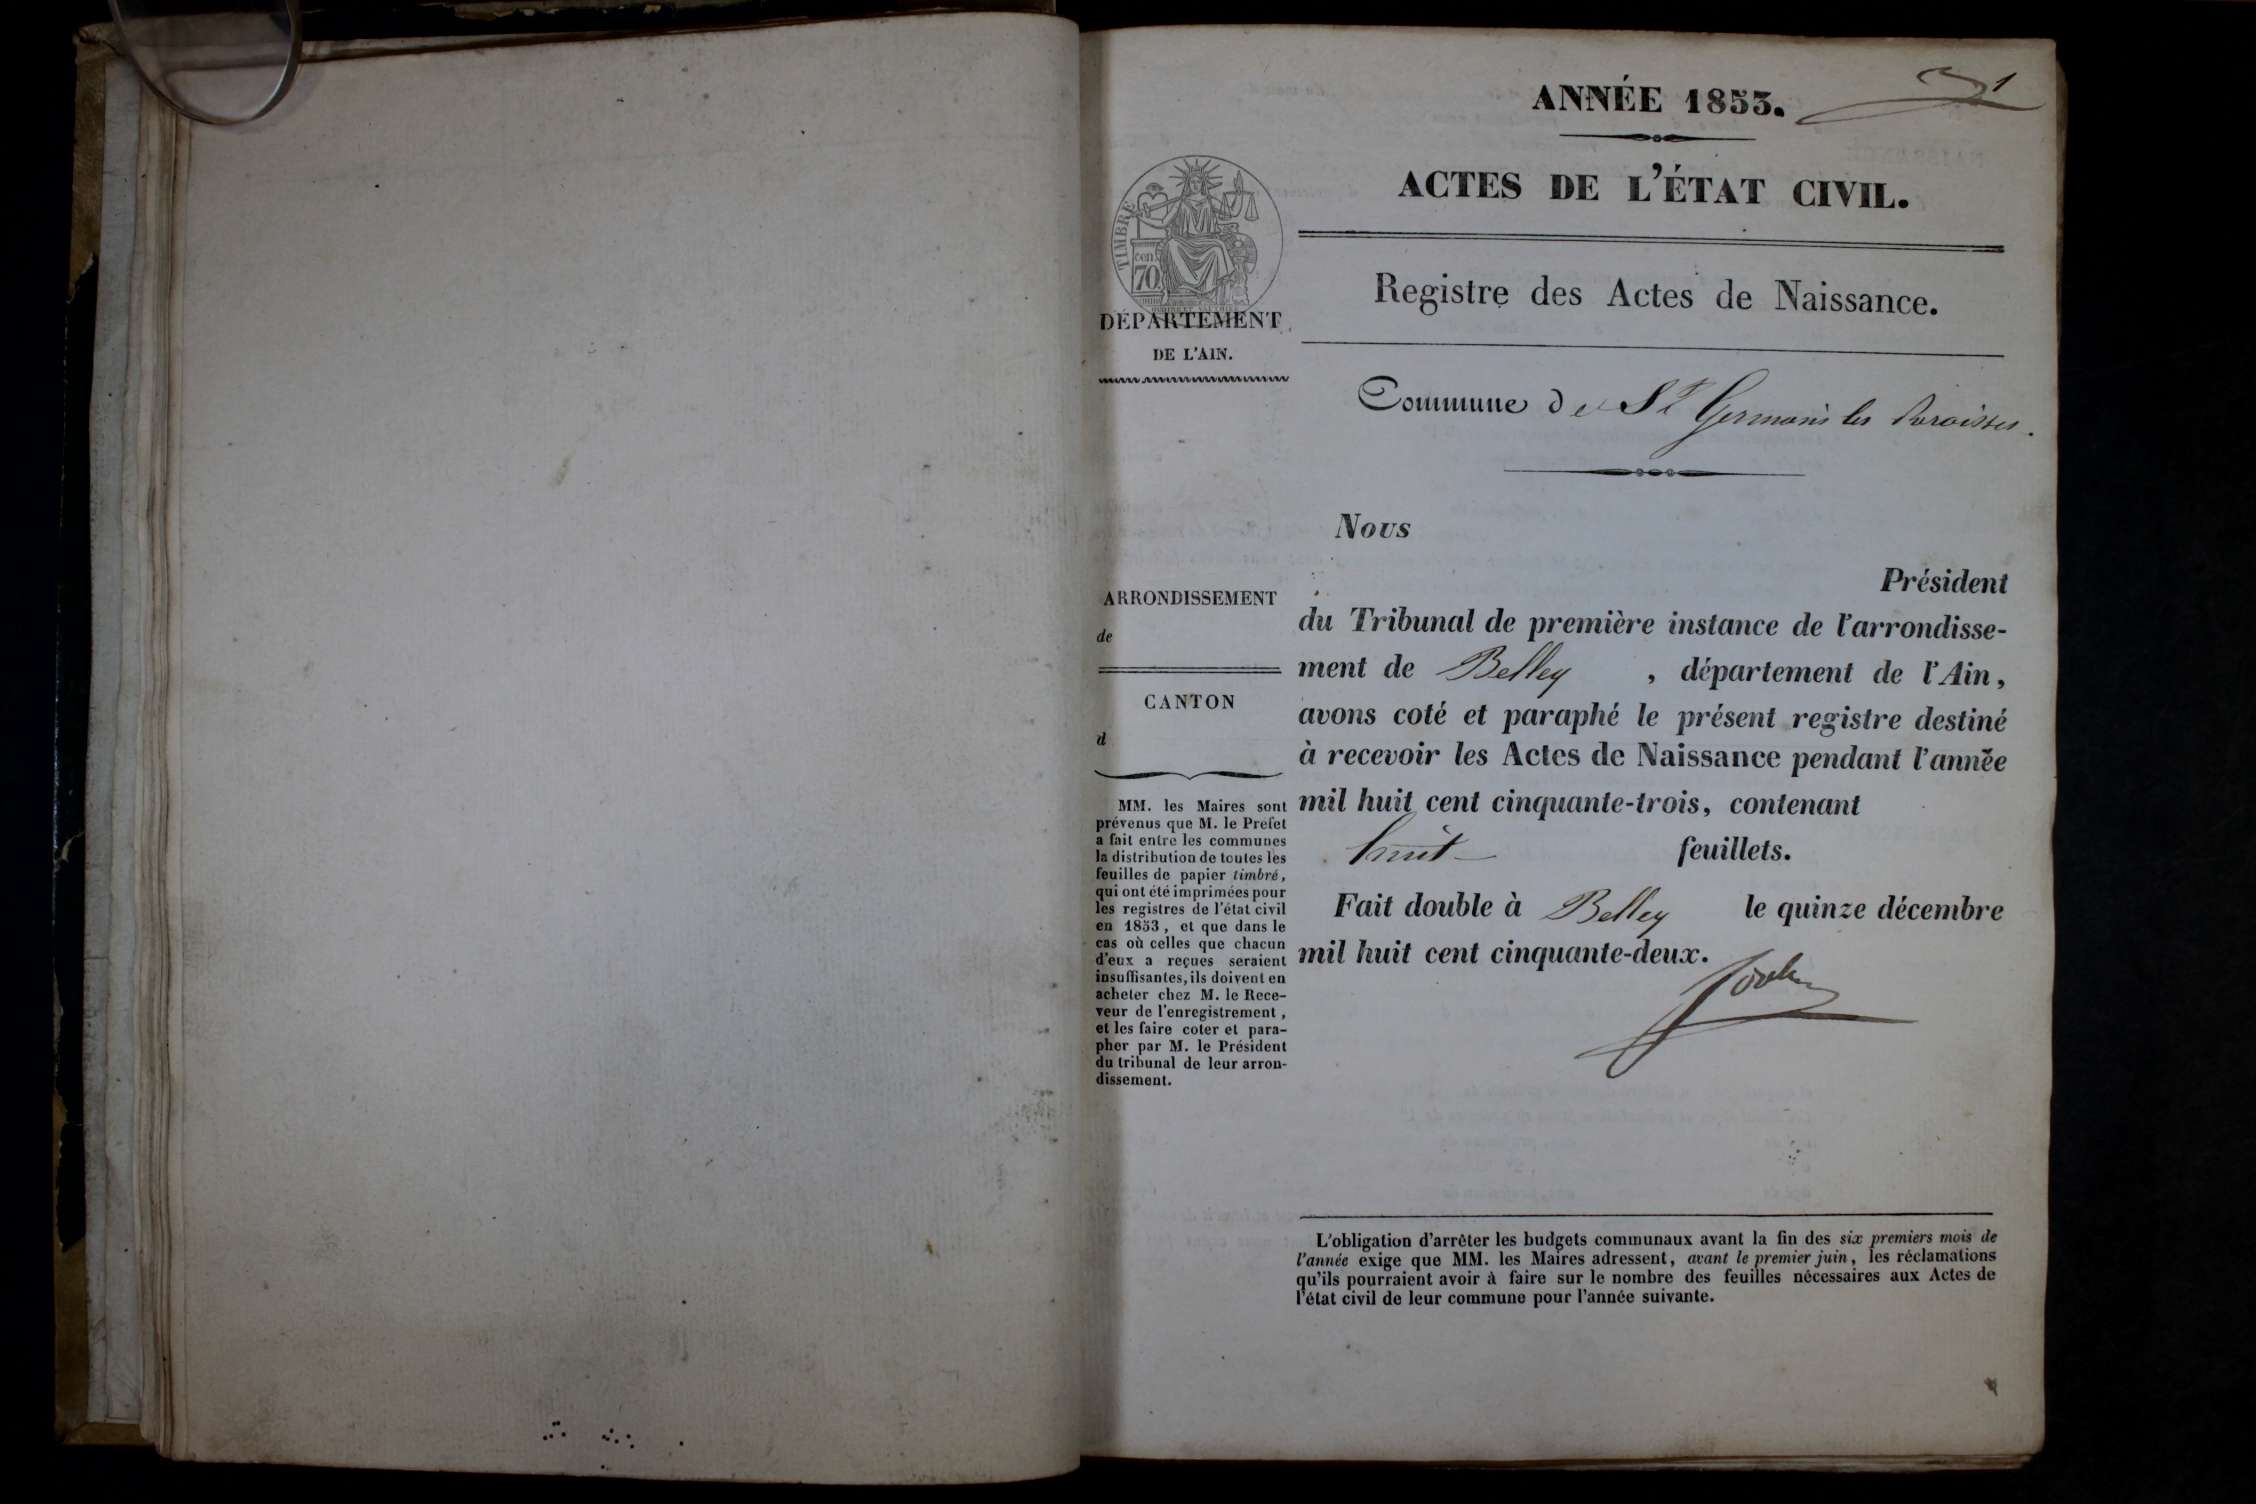 ANNÉE 1853.
1
ACTES DE L'ÉTAT CIVIL.
Registre des Actes de Naissance.
Commune de St Germain les Paroisses.
TIMBRE
cen.
70
DÉPARTEMENT
DE L'AIN.
ARRONDISSEMENT
de
CANTON
d
MM. les Maires sont
prévenus que M. le Prefet
a fait entre les communes
la distribution de toutes les
feuilles de papier timbré,
qui ont été imprimées pour
les registres de l'état civil
en 1853, et que dans le
cas où celles que chacun
d'eux a reçues seraient
insuffisantes, ils doivent en
acheter chez M. le Rece-
veur de l'enregistrement,
et les faire coter et para-
pher par M. le Président
du tribunal de leur arron-
dissement.
Nous
Président
du Tribunal de première instance de l'arrondisse-
ment de Belley, département de l'Ain,
avons coté et paraphé le présent registre destiné
à recevoir les Actes de Naissance pendant l'année
mil huit cent cinquante-trois, contenant
huit feuillets.
Fait double à Belley le quinze décembre
mil huit cent cinquante-deux.
L'obligation d'arrêter les budgets communaux avant la fin des six premiers mois de
l'année exige que MM. les Maires adressent, avant le premier juin, les réclamations
qu'ils pourraient avoir à faire sur le nombre des feuilles nécessaires aux Actes de
l'état civil de leur commune pour l'année suivante.